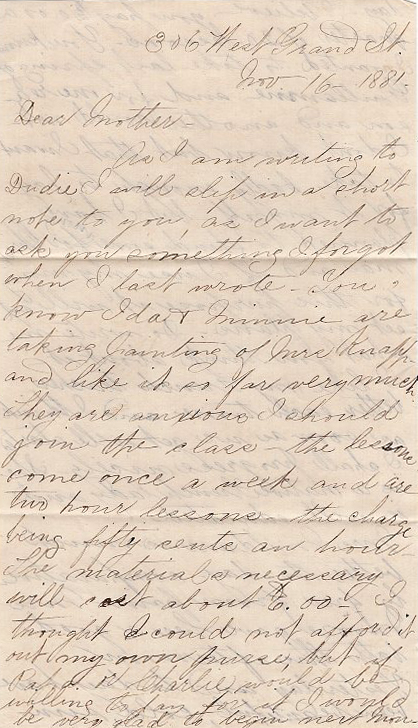 306 West Grand St.
Nov 16 - 1881.
Dear Mother -
As I am writing to
Dudie I will slip in a short
note to you, as I want to
ask you something I forgot
when I last wrote - You
know Ida & Minnie are
taking Painting of Mrs Knapp
and like it so far very much
They are anxious I should
join the class - the lessons
come once a week and are
two hour lessons - the charge
being fifty cents an hour
The materials necessary
will cost about .00 - I
thought I could not afford it
out my own purse, but if
Papa Charlie would be
willing to pay for it I would
be very glad to begin next